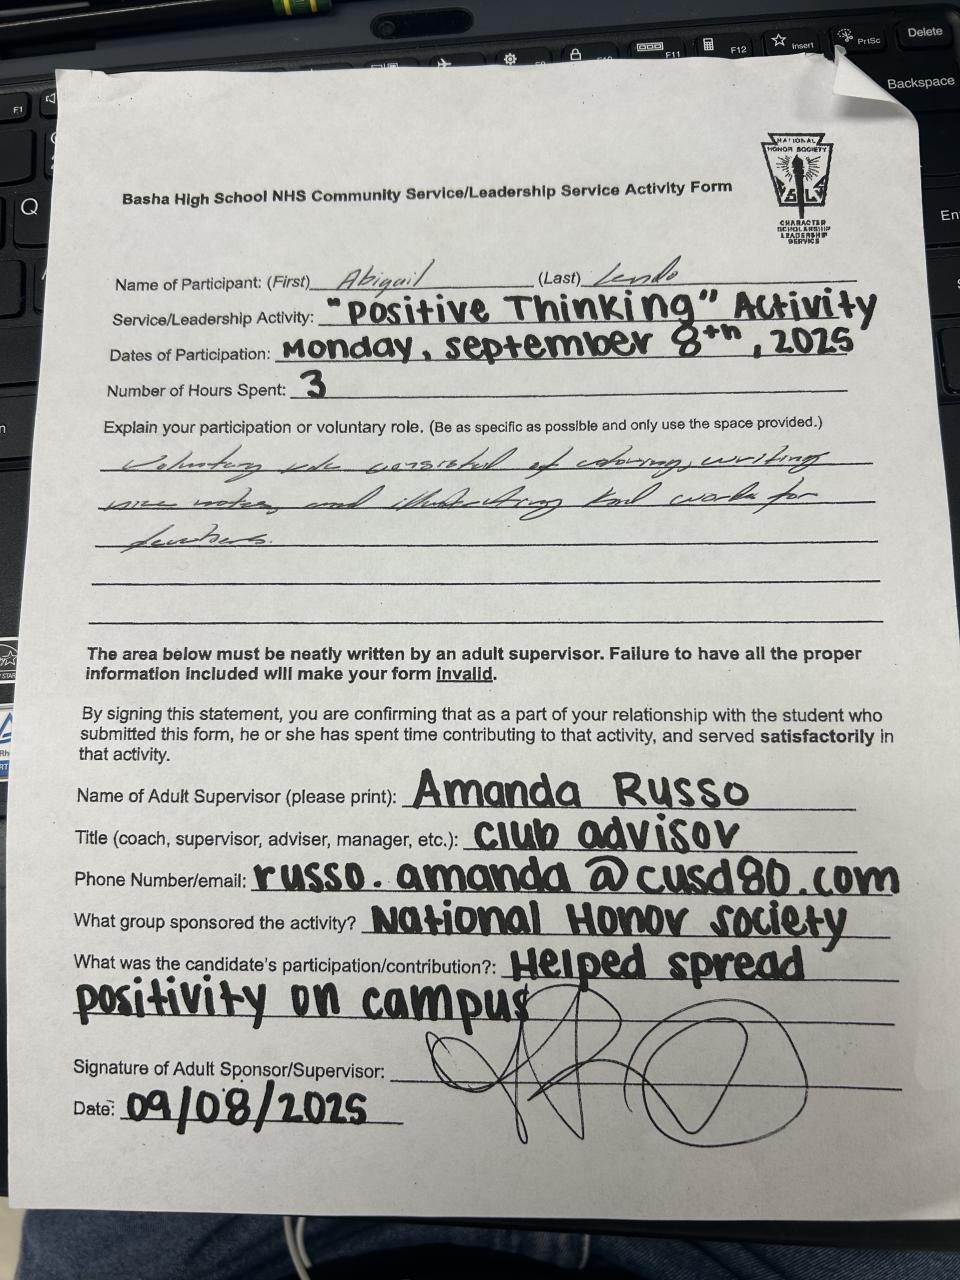 Delete
PrtSc
Insert
F12
F11
Backspace
F1
Q
NATIONAL
HONOR SOCIETY
CHARACTER
SCHOLARSHIP
LEADERSHIP
SERVICE
Basha High School NHS Community Service/Leadership Service Activity Form
Name of Participant: (First) Abigail (Last)
Service/Leadership Activity: "Positive Thinking" Activity
Dates of Participation: Monday, september 8th, 2025
Number of Hours Spent: 3
Explain your participation or voluntary role. (Be as specific as possible and only use the space provided.)
Voluntary role consisted of coloring, writing
nice notes, and illustrating kind words for
teachers.
The area below must be neatly written by an adult supervisor. Failure to have all the proper
information included will make your form invalid.
By signing this statement, you are confirming that as a part of your relationship with the student who
submitted this form, he or she has spent time contributing to that activity, and served satisfactorily in
that activity.
Name of Adult Supervisor (please print): Amanda Russo
Title (coach, supervisor, adviser, manager, etc.): club advisor
Phone Number/email: russo.amanda@cusd80.com
What group sponsored the activity? National Honor society
What was the candidate's participation/contribution?: Helped spread
positivity on campus
Signature of Adult Sponsor/Supervisor:
Date: 09/08/2025